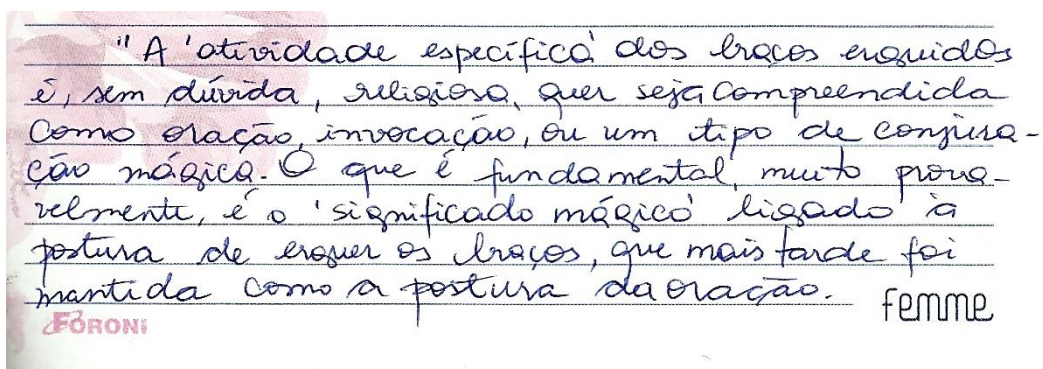 "A 'atividade específica' dos braços erguidos
é, sem dúvida, religiosa, quer seja compreendida
como oração, invocação, ou um tipo de conjura-
ção mágica. O que é fundamental, muito prova-
velmente, é o 'significado mágico' ligado à
postura de erguer os braços, que mais tarde foi
mantida como a postura da oração.
femme
FORONI